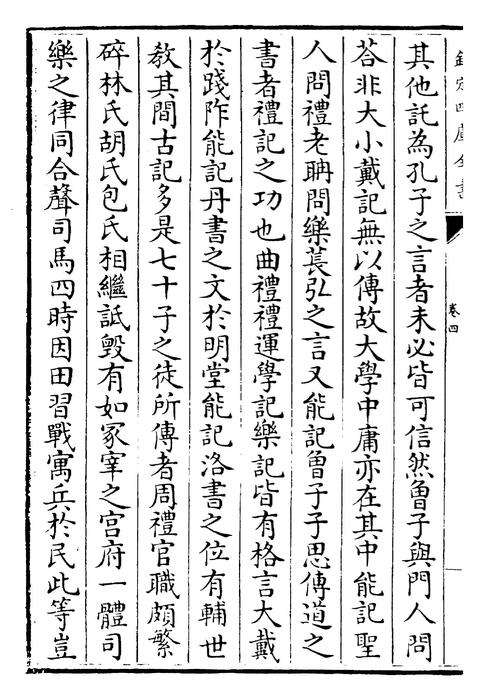 欽定四庫全書
卷四
其他託為孔子之言者未必皆可信然曾子與門人問
荅非大小戴記無以傳故大學中庸亦在其中能記聖
人問禮老聃問樂萇弘之言又能記曾子子思傳道之
書者禮記之功也曲禮禮運學記樂記皆有格言大戴
於踐阼能記丹書之文於明堂能記洛書之位有輔世
教其間古記多是七十子之徒所傳者周禮官職頗繁
碎林氏胡氏包氏相繼詆毀有如冢宰之宫府一體司
樂之律同合聲司馬四時因田習戰寓兵於民此等豈